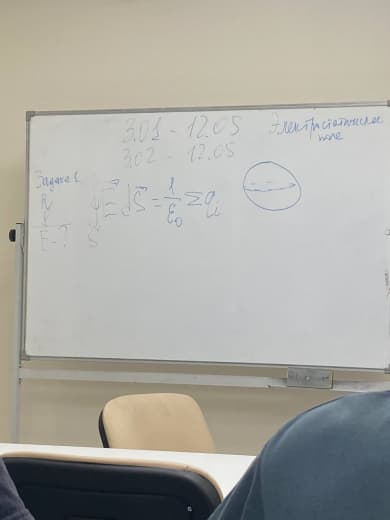 3.01 - 12.05
3.02 - 12.05
Электростатическое
поле
Задача 1
R
E - ?
∮ E⃗ dS⃗ = 1/ε₀ Σ qᵢ
S